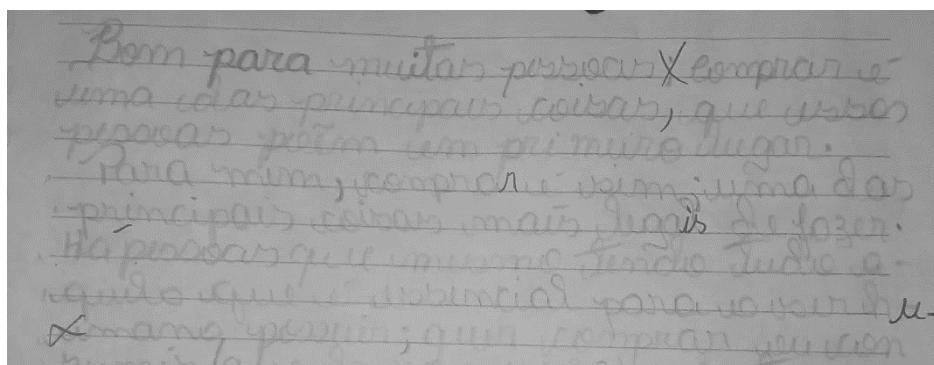 Bom para muitas pessoas X comprar é
uma das principais coisas, que essas
pessoas põem em primeiro lugar.
Para mim, comprar é sim, uma das
principais coisas mais legais de fazer.
Há pessoas que mesmo tendo tudo a-
quilo que é essencial para o ser hu-
mano, quer comprar